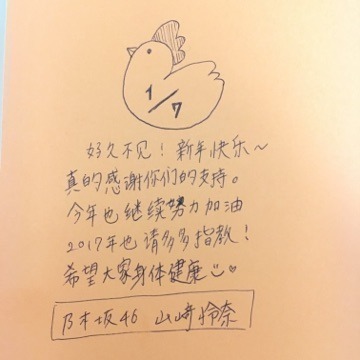 1/7
好久不见！新年快乐～
真的感谢你们的支持。
今年也继续努力加油
2017年也请多多指教！
希望大家身体健康
乃木坂46 山崎怜奈